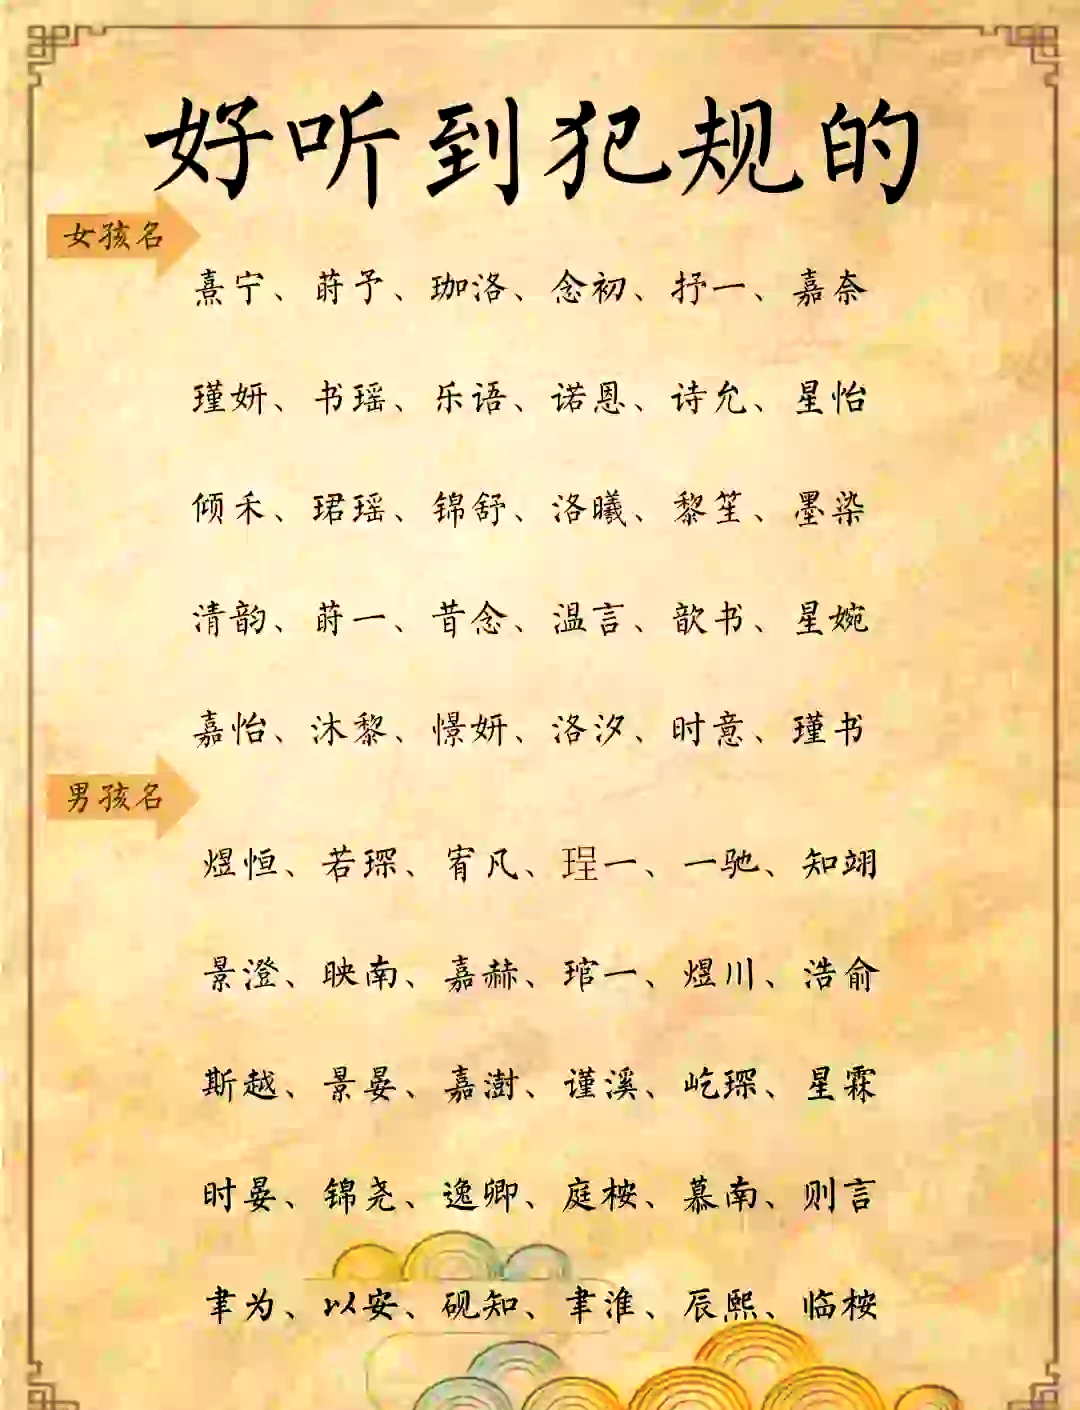 好听到犯规的
女孩名
熹宁、莳予、珈洛、念初、抒一、嘉奈
瑾妍、书瑶、乐语、诺恩、诗允、星怡
倾禾、珺瑶、锦舒、洛曦、黎笙、墨染
清韵、莳一、昔念、温言、歆书、星婉
嘉怡、沐黎、憬妍、洛汐、时意、瑾书
男孩名
煜恒、若琛、宥凡、珵一、一驰、知翊
景澄、映南、嘉赫、琯一、煜川、浩俞
斯越、景晏、嘉澍、谨溪、屹琛、星霖
时晏、锦尧、逸卿、庭桉、慕南、则言
聿为、以安、砚知、聿淮、辰熙、临桉